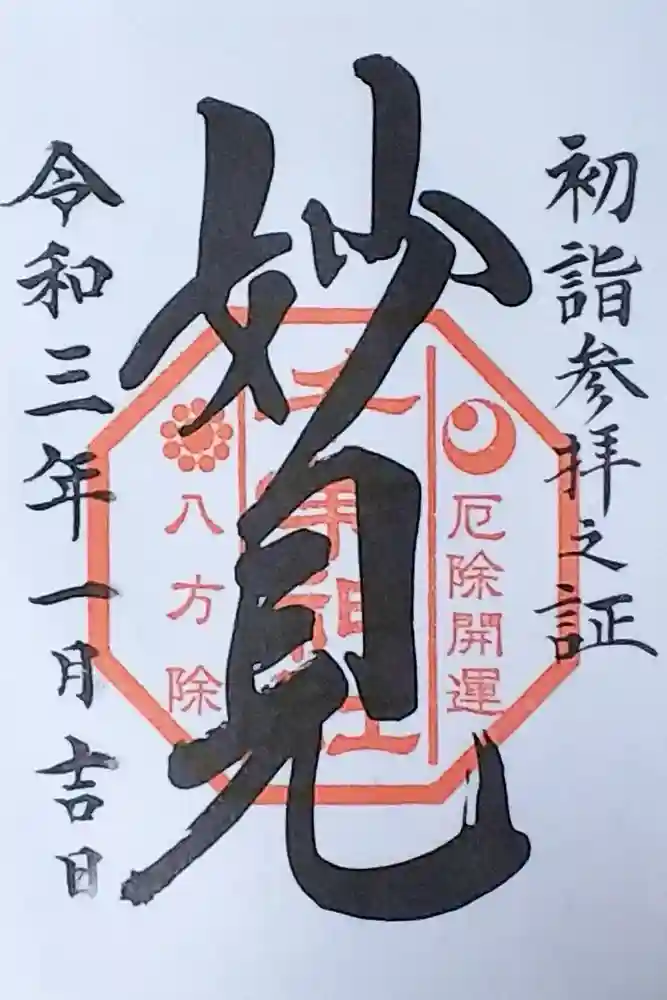 初詣参拝之証
厄除開運
妙見
八方除
令和三年一月吉日